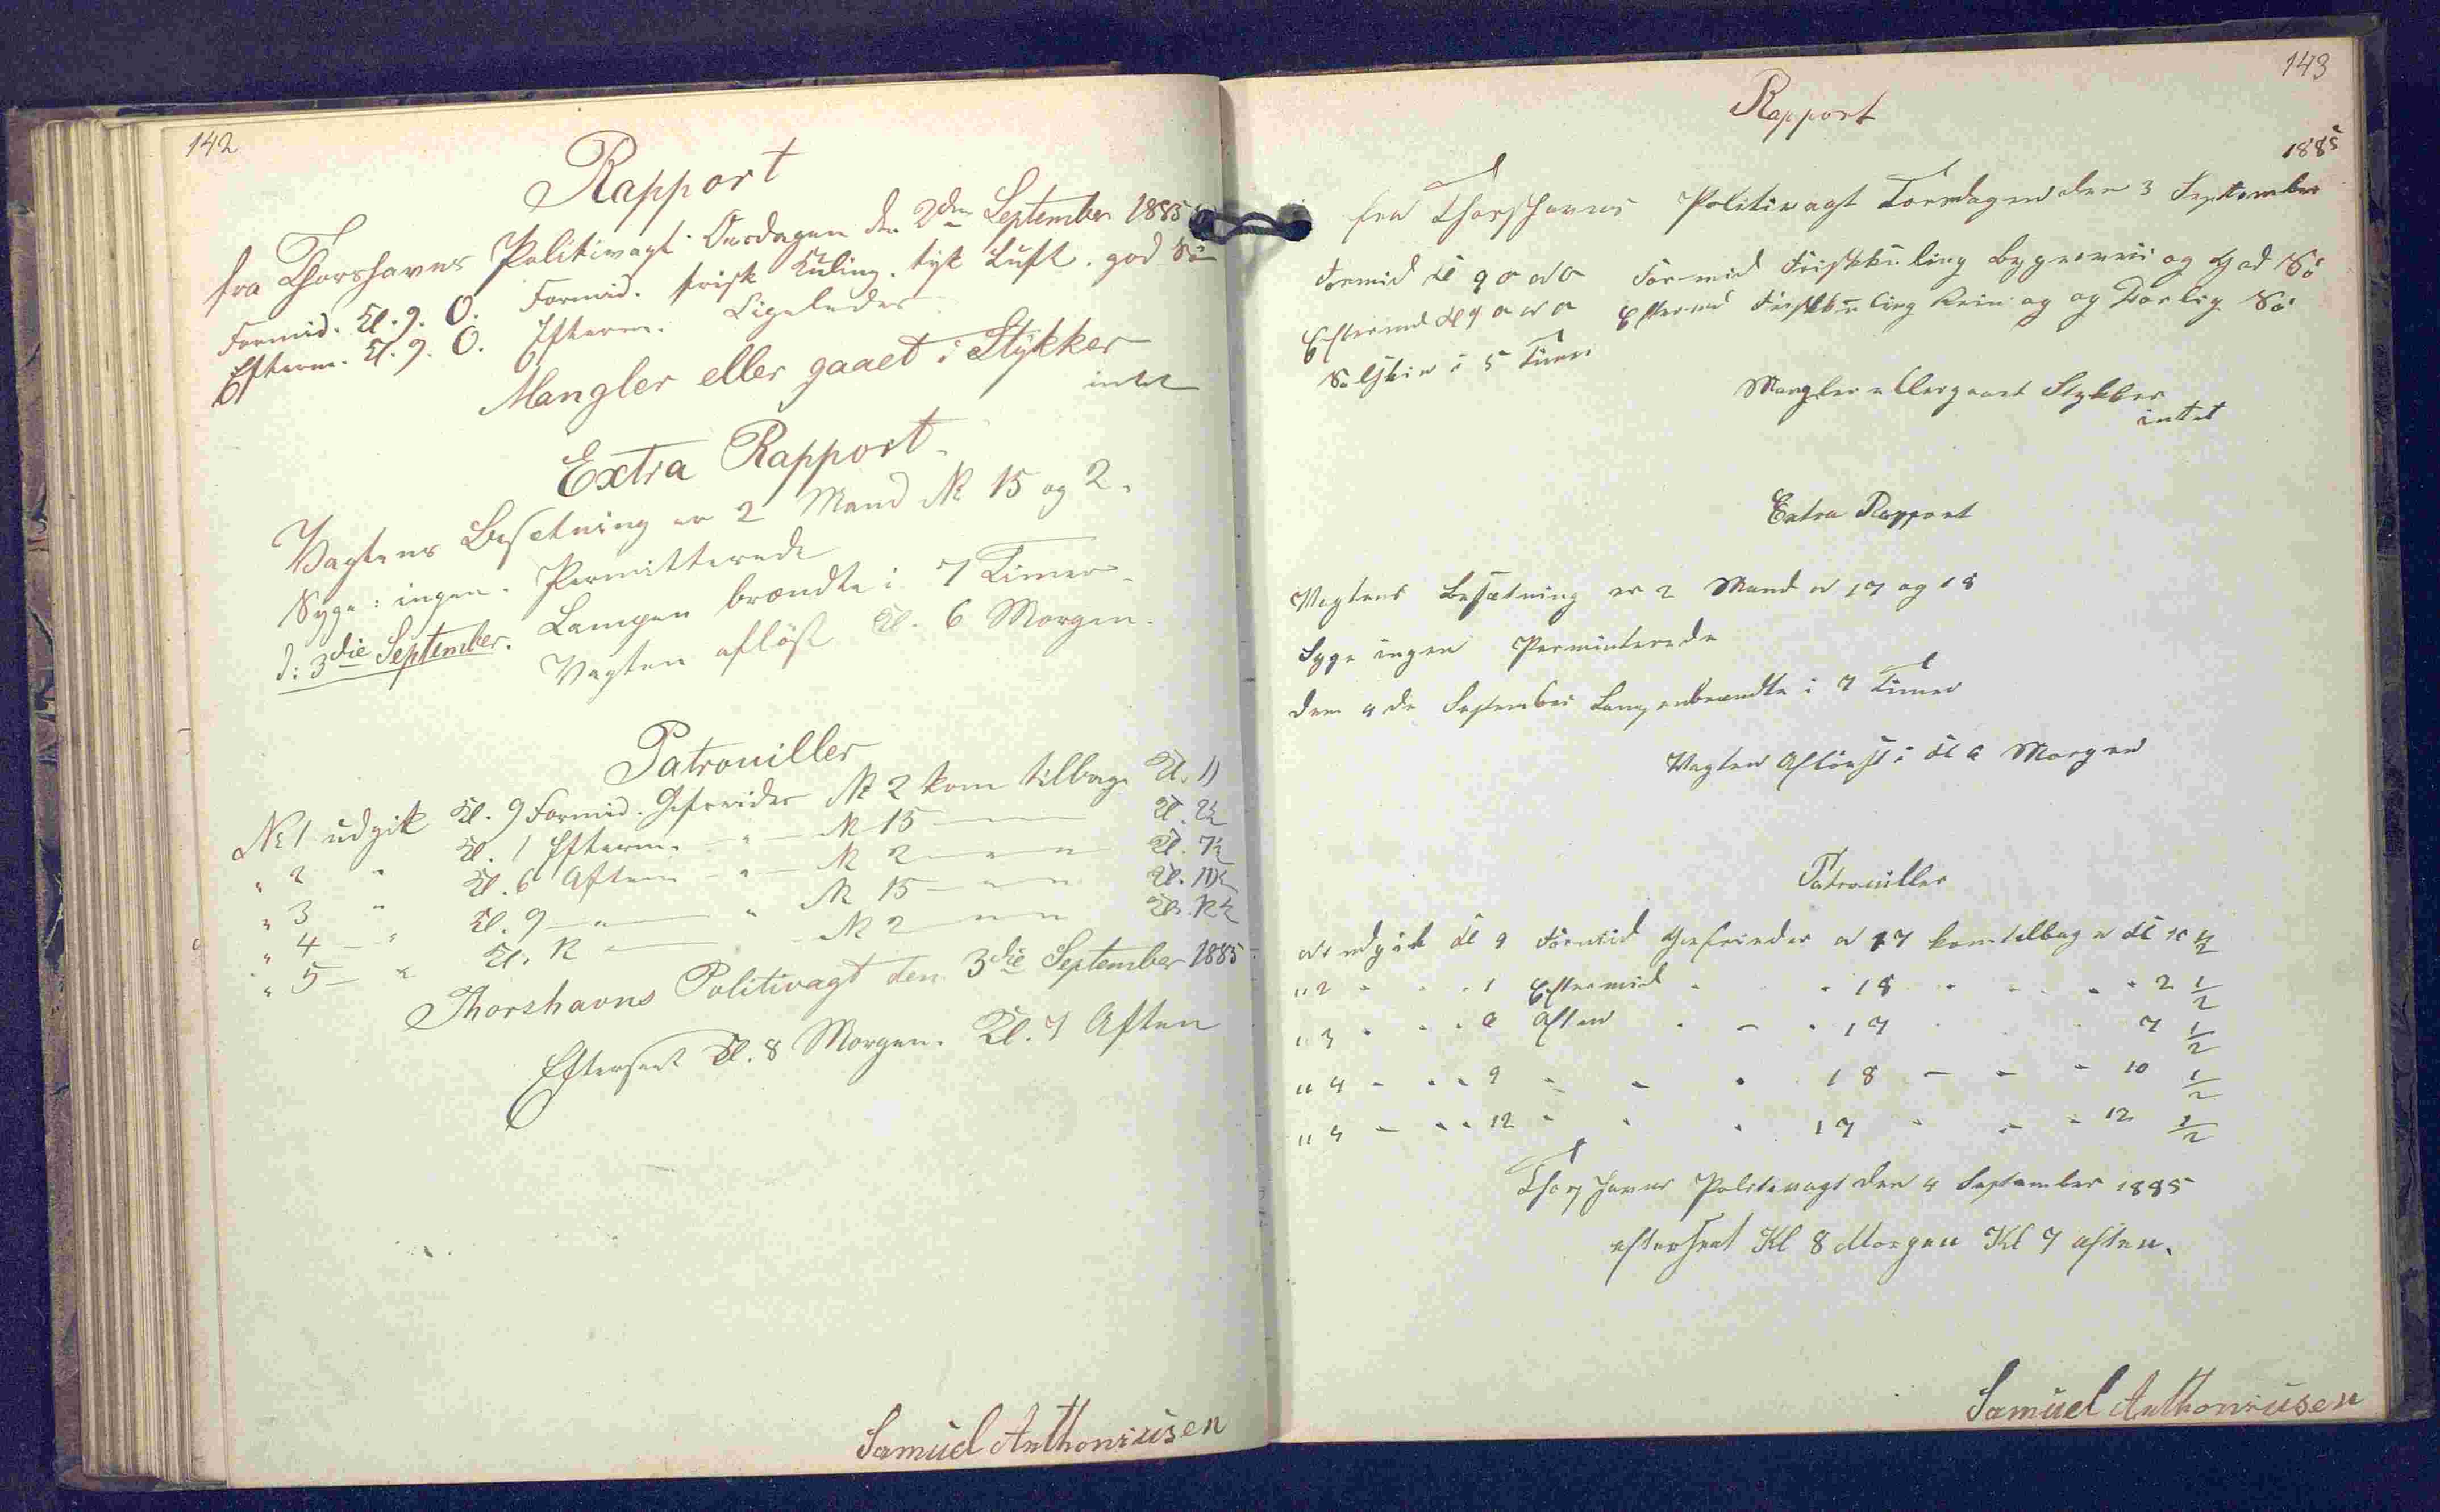 142
Rapport
fra Thorshavns Politivagt Onsdagen den 2den September 1885
Formid. Kl. 9. O. Formid. frisk Kuling. tyk Luft. god Sö
Efterm. Kl. 9. O. Efterm. Ligeledes
Mangler eller gaaet i Stykker
intet
Extra Rapport.
Vagtens Besetning er 2 Mand № 15 og 2.
Syge: ingen. Permitterede
d: 3die September. Lampen brændte i 7 Timer
Vagten aflöst Kl. 6 Morgen.
Patrouiller
№ 1 udgik Kl. 9 Formid. Gefreider № 2 kom tilbage Kl. 11
" 2 " Kl. 1 Efterm. - " - № 15 Kl. 2½
" 3 " Kl. 6 Aften - " - № 2 Kl. 7½
" 4 - " Kl. 9 - " - " № 15 Kl. 10½
" 5 - " Kl. 12 № 2 Kl. 12½
Thorshavns Politivagt den 3die September 1885
Efterseet Kl. 8 Morgen. Kl. 7 Aften
Samuel Anthoniusen
143
Rapport
1885
fra Thorshavns Politivagt Torsdagen den 3 September
Formid Kl 9 Formid Friskkuling og God Sö
Eftermd Kl 9 Eftermd Friskkuling Rein og og Dorlig Sö
Solskin i 5 Timer
Mangler eller gaaet Stykker
intet
Extra Rapport
Vagtens Besætning er 2 Mand № 17 og 18
Syge ingen Perminterede
den 4 de September Lampenbrændte i 7 Timer
Vagten Aflöest i Kl 6 Morgen
Patrouiller
№ 1 udgik Kl 9 Formid Gefreider № 17 kom tilbage Kl 10 ½
" 2 " " " 1 Eftermid " " 18 " " " " 2 ½
" 3 " " " 6 Aften " - " 17 " " 7 ½
" 4 - " " 9 " - " 18 - - - 10 ½
" 5 - " " 12 " " " 17 " - - 12 ½
Thorshavns Politivagt den 4 September 1885
efterseet Kl 8 Morgen Kl 7 aften.
Samuel Anthoniusen